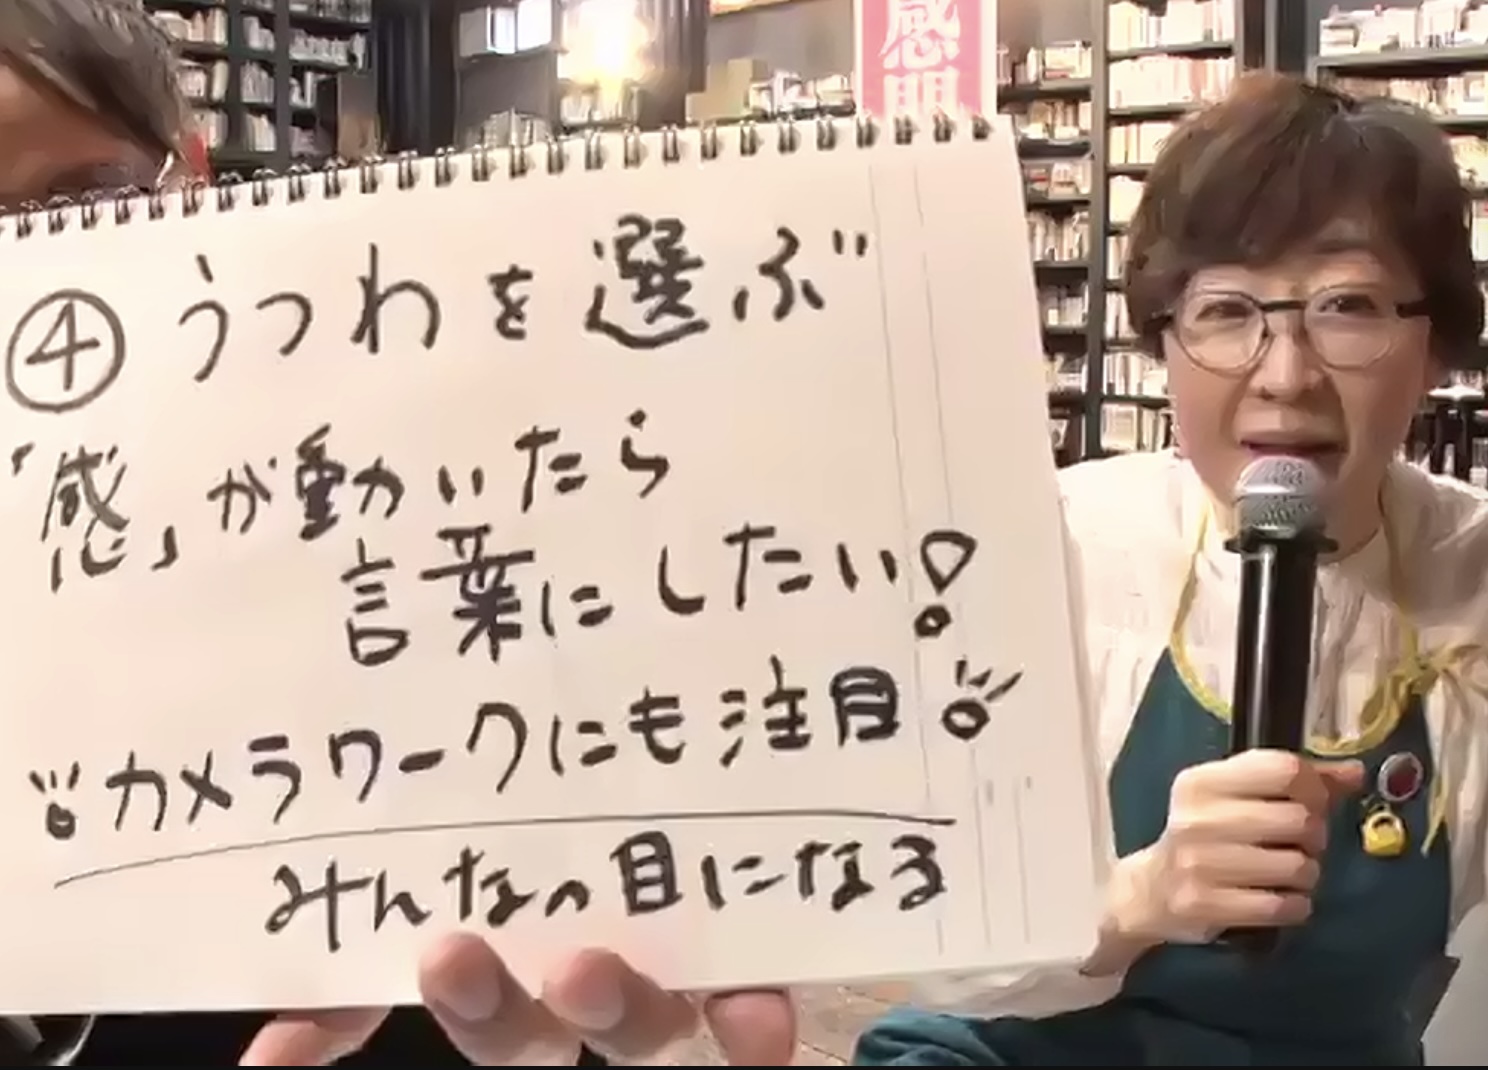 感
④ うつわを選ぶ
「感」が動いたら
言葉にしたい!
カメラワークにも注目
みんなの目になる